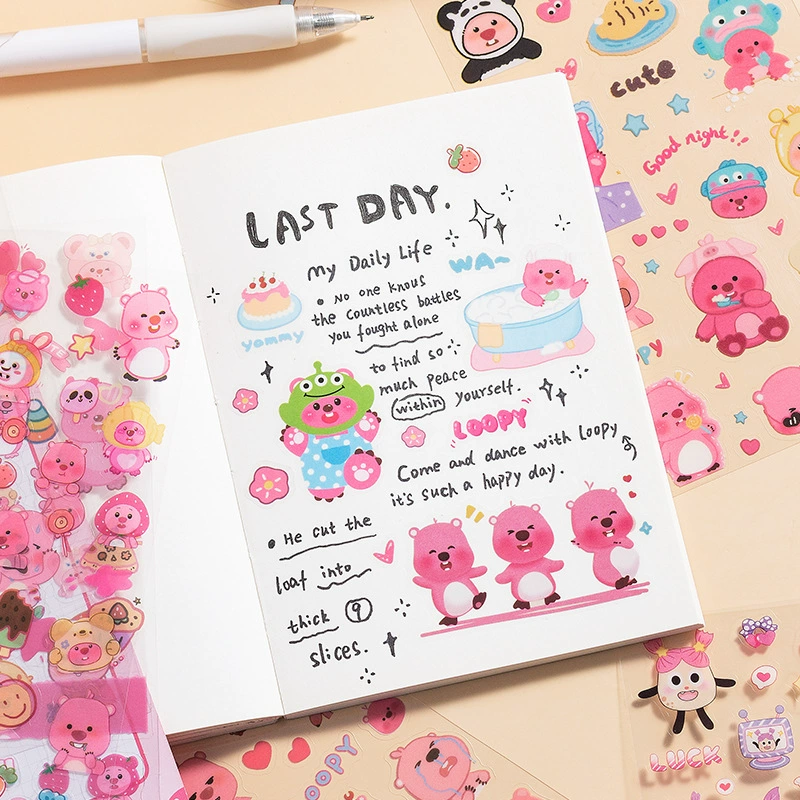 LAST DAY.
My Daily Life
• No one knous
the countless battles
you fought alone
to find so
much peace
within yourself.
WA~
yommy
LOOPY
Come and dance with Loopy
it's such a happy day.
• He cut the
loaf into
thick 9
slices.
cute
Good night!!
LUCK
OOPY